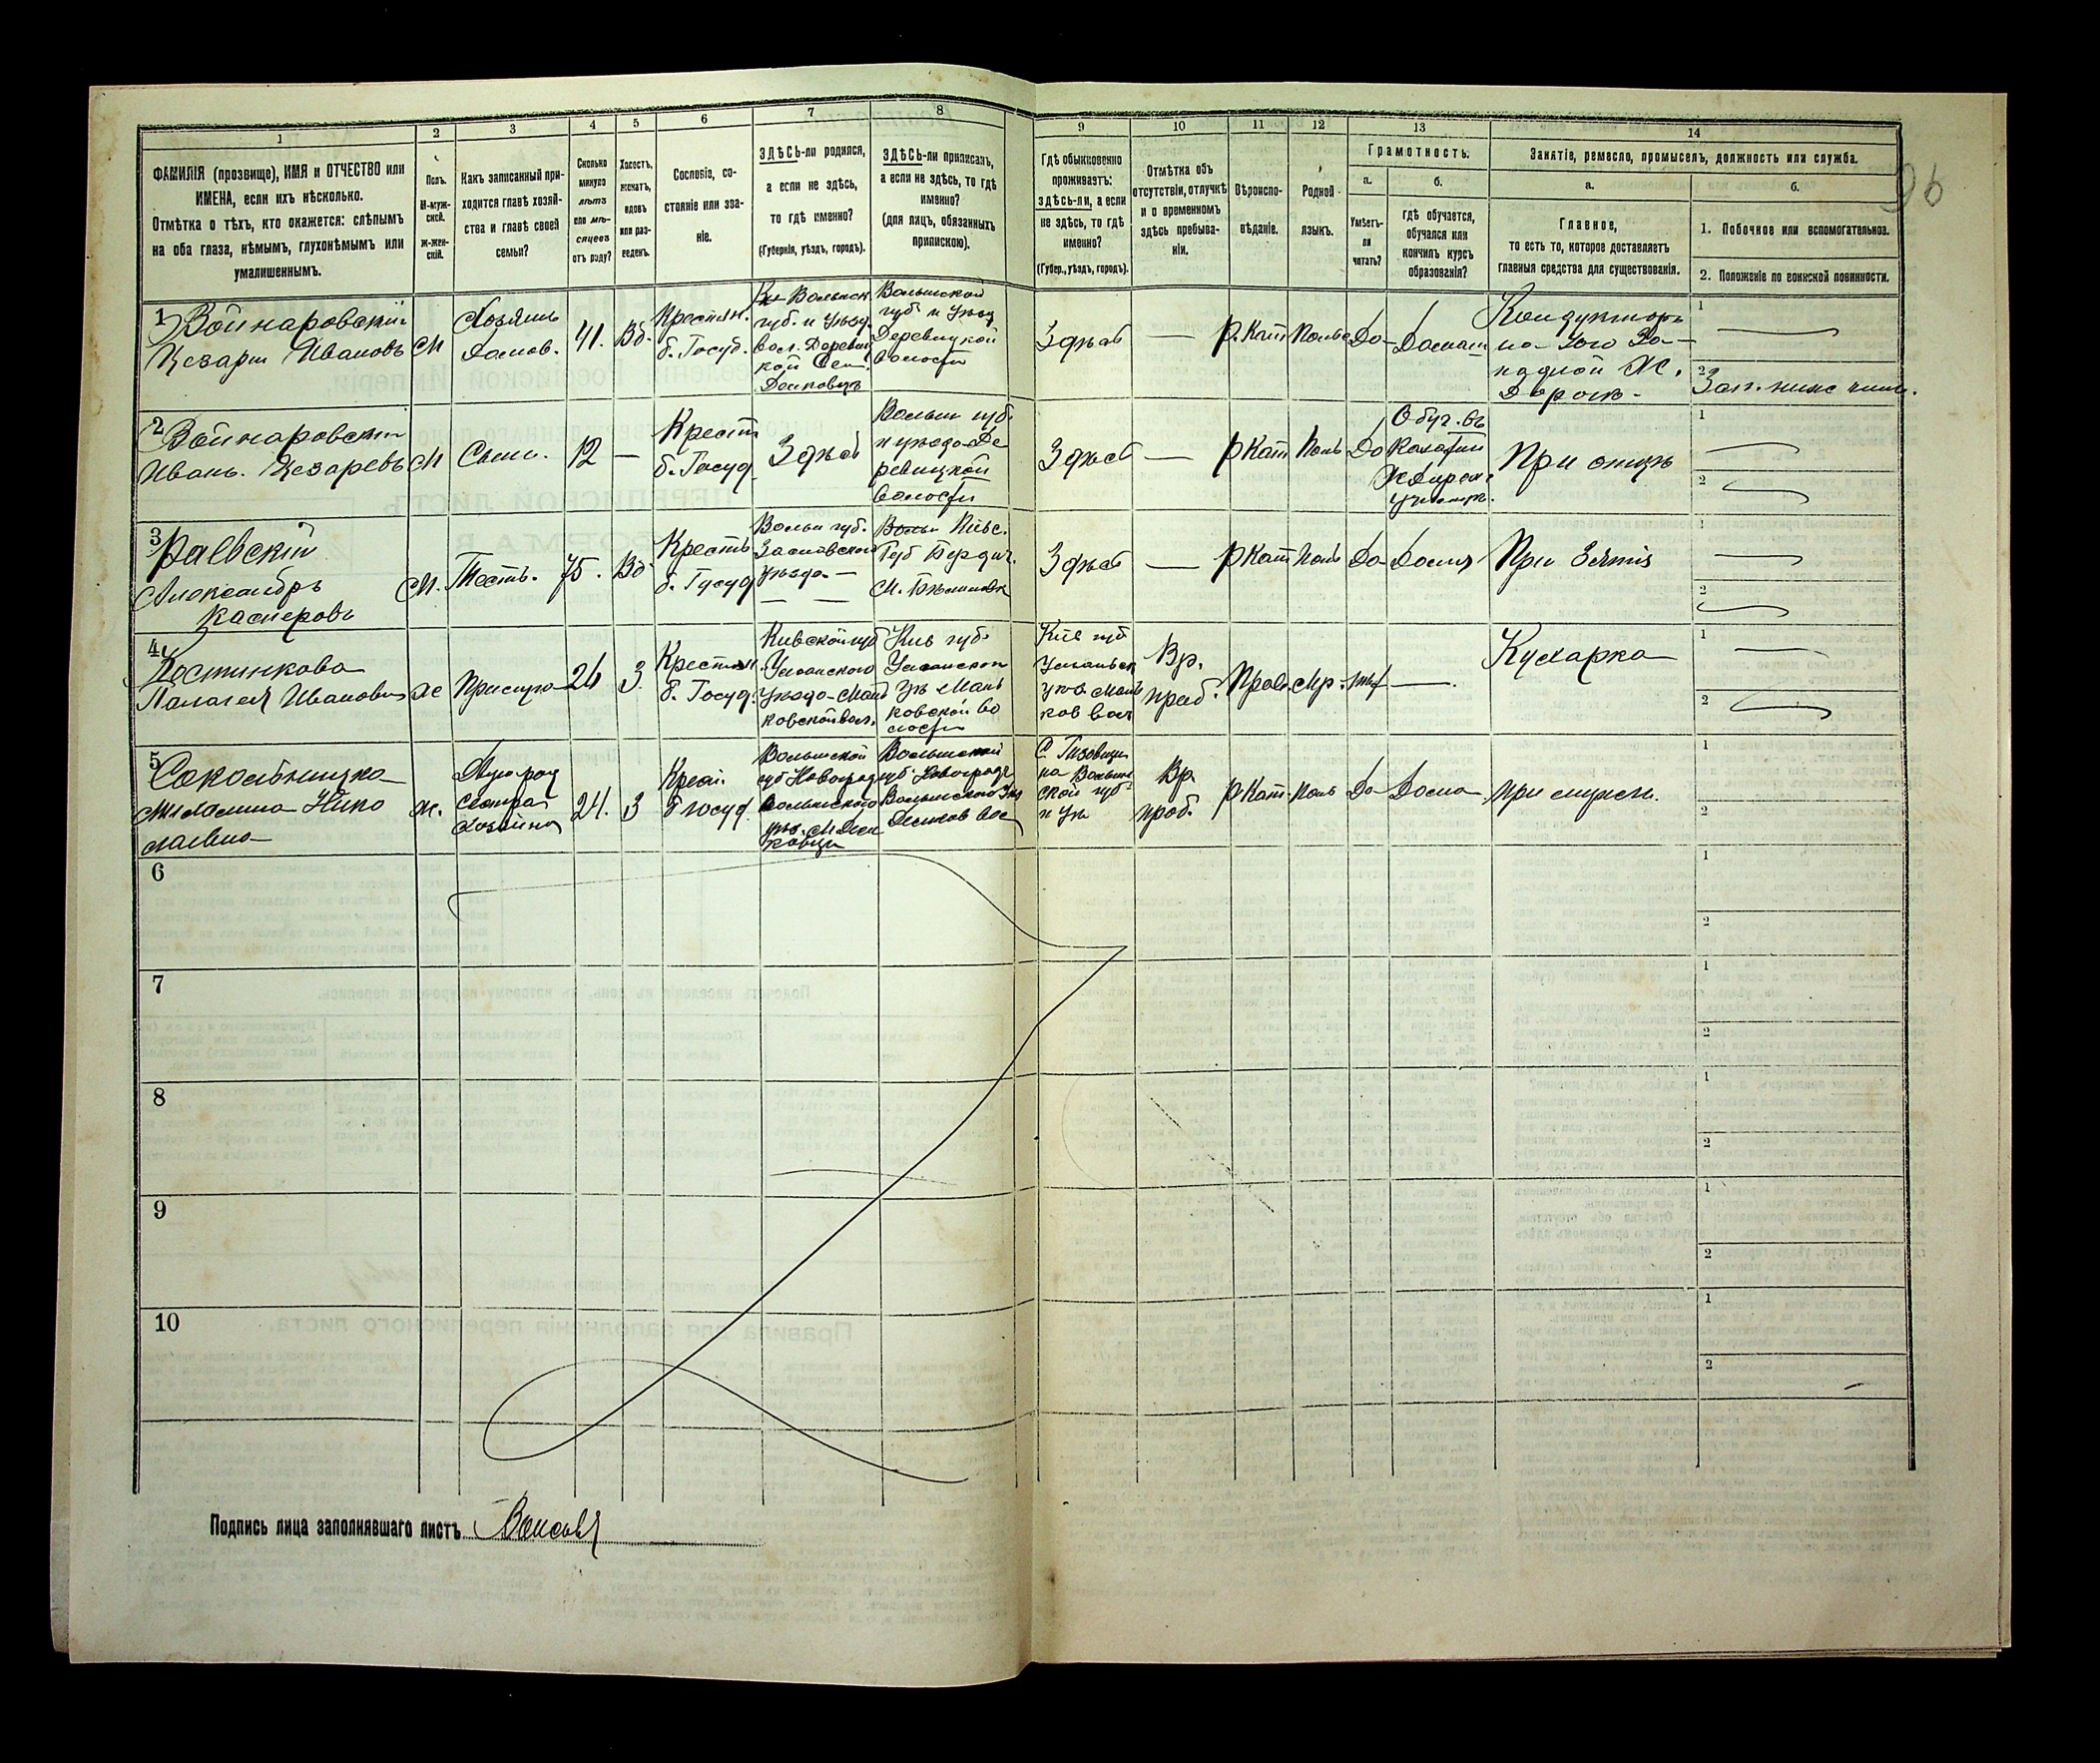 1 2 3 4 5 6 7 8 9 10 11 12 13 14
ФАМИЛІЯ (прозвище), ИМЯ и ОТЧЕСТВО или
ИМЕНА, если ихъ нѣсколько.
Отмѣтка о тѣхъ, кто окажется: слѣпымъ
на оба глаза, нѣмымъ, глухонѣмымъ или
умалишеннымъ.
Полъ.
М-муж-
ской.
Ж-жен-
скій.
Какъ записанный при-
ходится главѣ хозяй-
ства и главѣ своей
семьи?
Сколько
минуло
лѣтъ
или мѣ-
сяцевъ
отъ роду?
Холостъ,
женатъ,
вдовъ
или раз-
веденъ.
Сословіе, со-
стояніе или зва-
ніе.
ЗДѢСЬ-ли родился,
а если не здѣсь,
то гдѣ именно?
(Губернія, уѣздъ, городъ).
ЗДѢСЬ-ли приписанъ,
а если не здѣсь, то гдѣ
именно?
(для лицъ, обязанныхъ
припискою).
Гдѣ обыкновенно
проживаетъ:
здѣсь-ли, а если
не здѣсь, то гдѣ
именно?
(Губер., уѣздъ, городъ).
Отмѣтка объ
отсутствіи, отлучкѣ
и о временномъ
здѣсь пребыва-
ніи.
Вѣроиспо-
вѣданіе.
Родной
языкъ.
Грамотность.
а.
Умѣетъ-
ли
читать?
б.
гдѣ обучается,
обучался или
кончилъ курсъ
образованія?
Занятіе, ремесло, промыселъ, должность или служба.
а.
Главное,
то есть то, которое доставляетъ
главныя средства для существованія.
б.
1. Побочное или вспомогательное.
2. Положеніе по воинской повинности.
96
1
Войнаровскій
Цезарій Ивановъ
М
Хозяинъ
Домов.
41.
Вд.
Крестьян.
б. Госуд.
Волынск
губ. и уѣзд.
вол. Деревиц
кой Сел.
Волынской
губ. и уѣзд
Деревицкой
волости
Здѣсь
—
Р.Кат
Польс
Да
Домаш
Кондукторъ
на Юго За-
падной Ж.
Дорогѣ
1
2
Зап. ниж. чинъ.
2
Войнаровскій
Иванъ. Цезаревъ
М
Сынъ.
12
—
Крест
б. Госуд
Здѣсь
Волын губ.
и уѣзда Де
ревицкой
волости
Здѣсь
—
Р Кат
Поль
Да
Обуч. въ
Казатин
Ж.Дорож.
училищѣ.
При отцѣ
1
2
3
Раевскій
Александръ
Касперовъ
М.
Тесть.
75.
Вд
Крестъ
б. Госуд
Волын губ.
Заславскаго
уѣзда —
Кіевс.
Губ Бердич.
Здѣсь
—
Р Кат
Поль
Да
Дома
При зятѣ
1
2
4
Костинкова
Палагея Ивановна
Ж
Прислуга
24
З.
Крестьян
б. Госуд.
Кіевской губ
Уманскаго
уѣзда Мань
ковской вол.
Кіев губ.
Уманскаго
уѣ Мань
ковской во
лости
Кіев губ
Уманьск
уѣз Мань
ков вол
Вр.
преб.
Прав.
Мр.
нѣт
—.
Кухарка
1
2
5
Сокольницка
Нико
лаевна
ж.
Двоюрод
сестра
хозяина
24.
З
Крест.
б госуд
Волынской
губ Новоград
волынскаго
уѣз.
Волынской
губ Новоградъ
Волынскаго уѣз
вол
С.
на Волын
ской губ.
и уѣз
Вр
проб.
Р Кат.
Поль
Да
Дома
при
1
2
6
1
2
7
1
2
8
1
2
9
1
2
10
1
2
Подпись лица заполнявшаго листъ